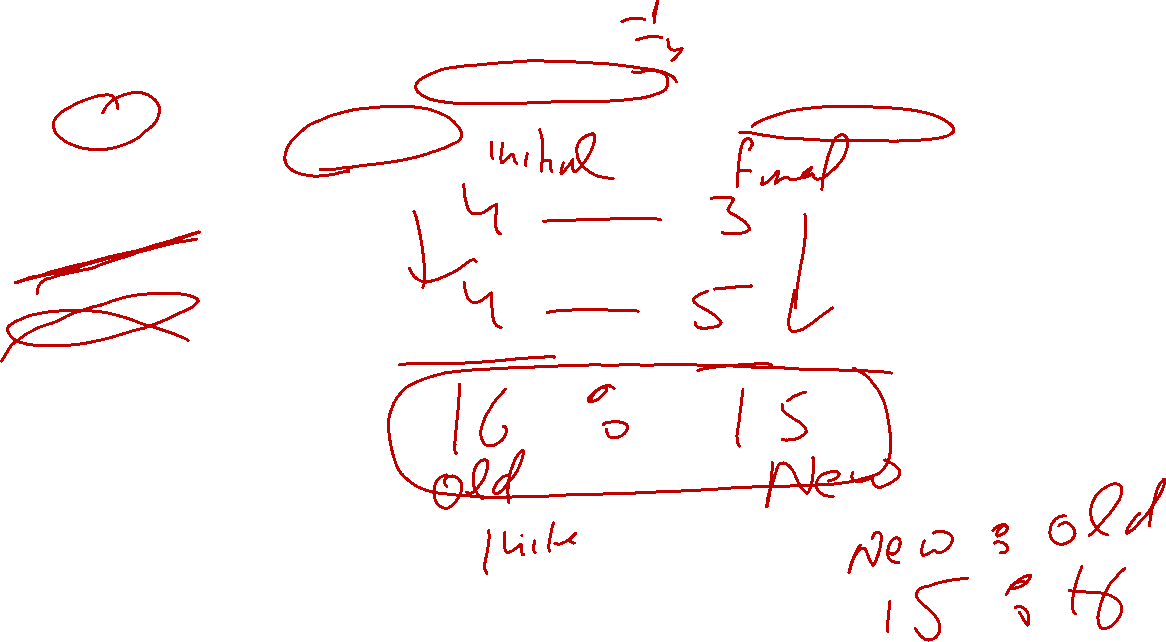 initial final
4 — 3
4 — 5
16 : 15
old New
New : old
15 : 16